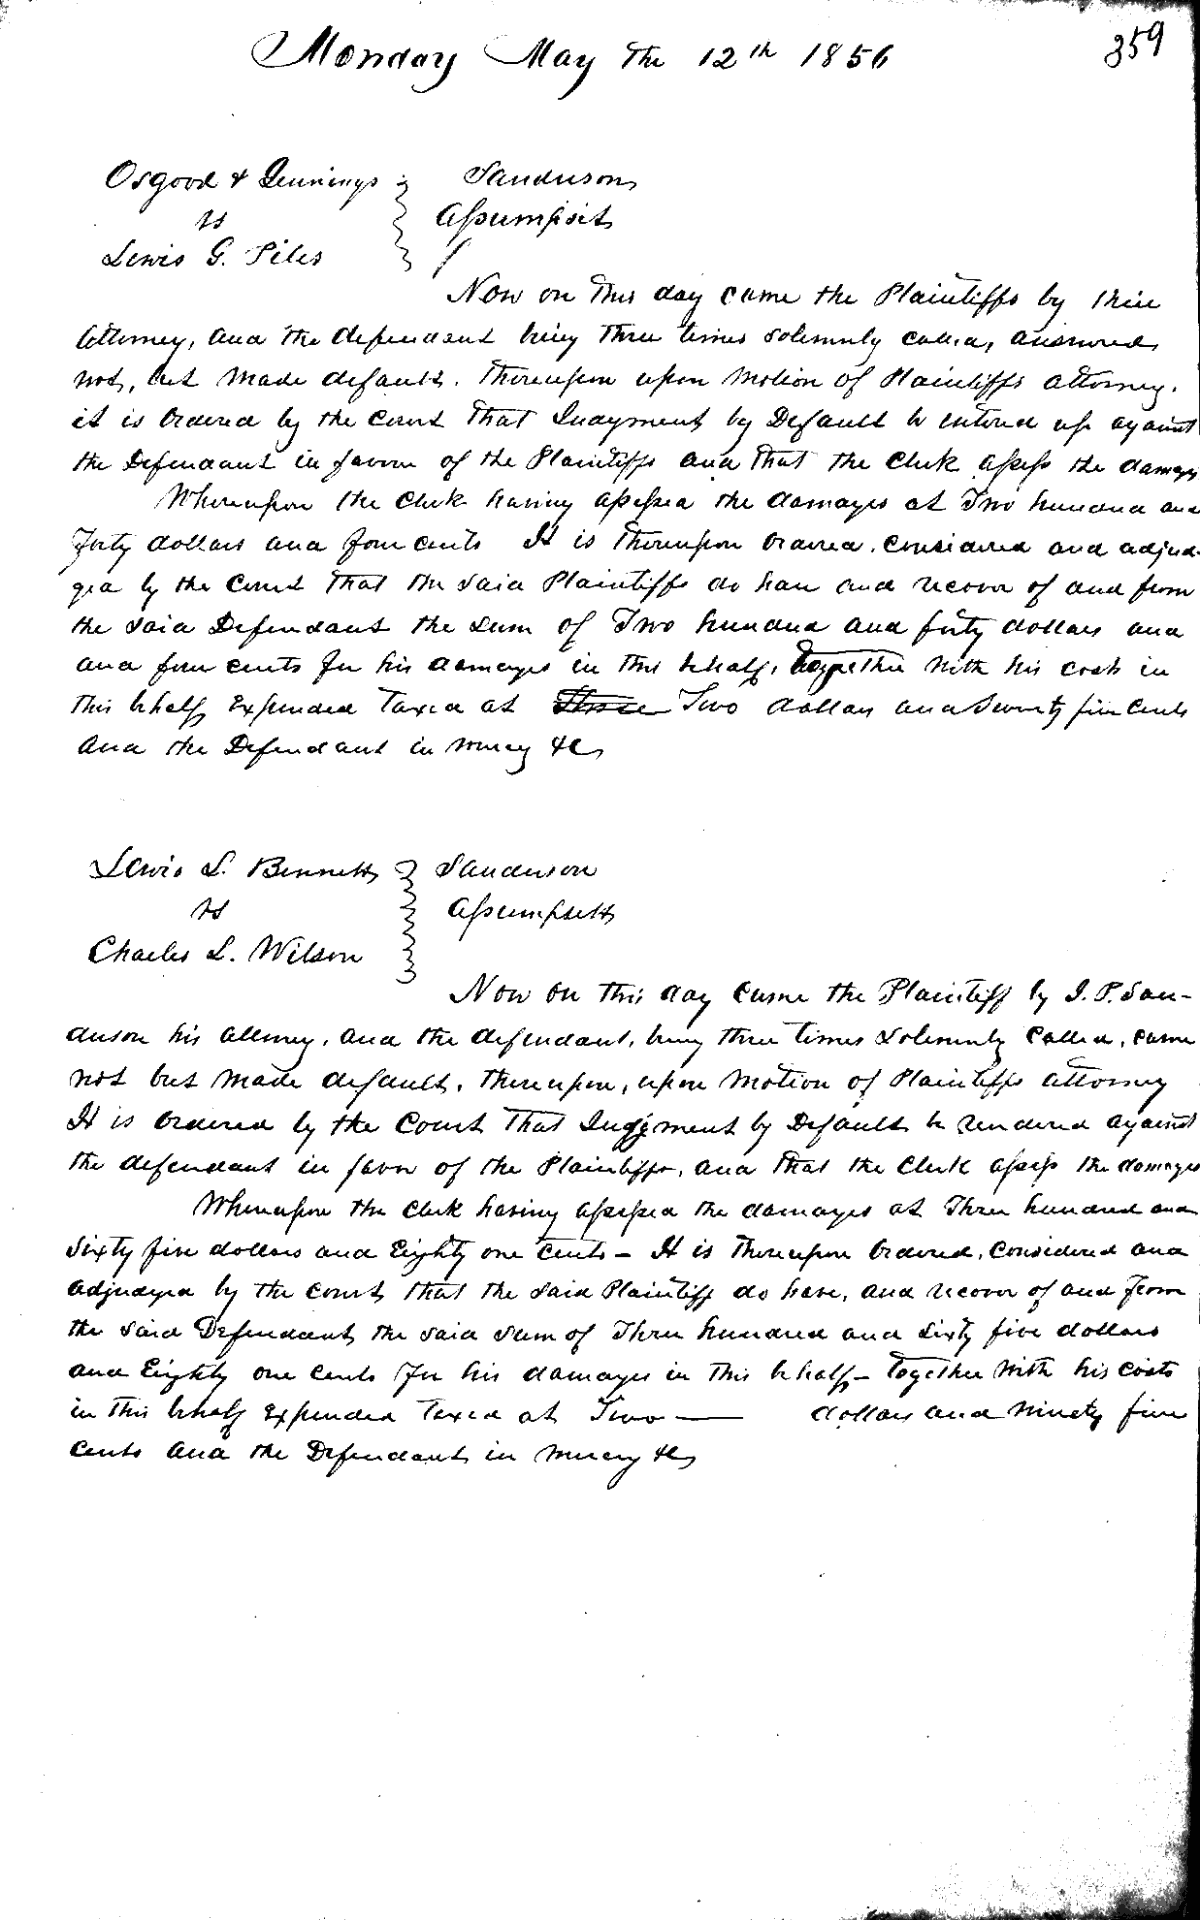 Monday May the 12th 1856
359
Osgood & Jennings
Sanderson
vs
Assumpsit
Lewis G. Piles
Now on this day came the Plaintiffs by their
Attorney, and the defendant being three times solemnly called, answered
not, but made default. Thereupon upon motion of Plaintiffs attorney.
it is Ordered by the Court that Judgment by Default be entered up against
the Defendant in favour of the Plaintiffs and that the Clerk assess the damages
Whereupon the Clerk having assessed the damages at Two hundred and
Forty dollars and four cents It is thereupon Ordered, considered and adjud-
ged by the Court that the said Plaintiffs do have and recover of and from
the said Defendant the sum of Two hundred and forty dollars and
and four cents for his damages in this behalf, together with his costs in
this behalf Expended Taxed at Three Two dollars and Seventy five Cents
and the Defendant in mercy &c
Lewis L. Bennett
Sanderson
vs
Assumpsett
Charles L. Wilson
Now on this day came the Plaintiff by J. P. San-
derson his attorney, and the defendant, being three times solemnly called, came
not but made default, thereupon, upon motion of Plaintiffs attorney
It is Ordered by the Court that Judgment by Default be rendered against
the defendant in favor of the Plaintiffs, and that the Clerk assess the damages
Whereupon the Clerk having assessed the damages at Three hundred and
Sixty five dollars and Eighty one Cents - It is thereupon Ordered, Considered and
adjudged by the Court that the said Plaintiff do have, and recover of and From
the said Defendant the said sum of Three hundred and Sixty five dollars
and Eighty one Cents for his damages in this behalf - together with his costs
in this behalf Expended Taxed at Two — dollars and Ninety five
Cents and the Defendant in mercy &c